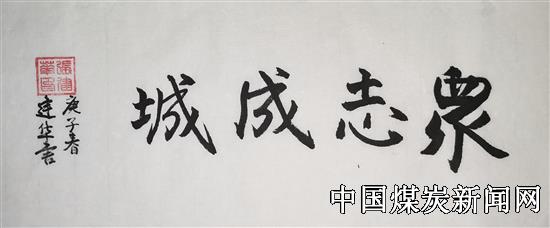 衆志成城
庚子春
建华書
中国煤炭新闻网